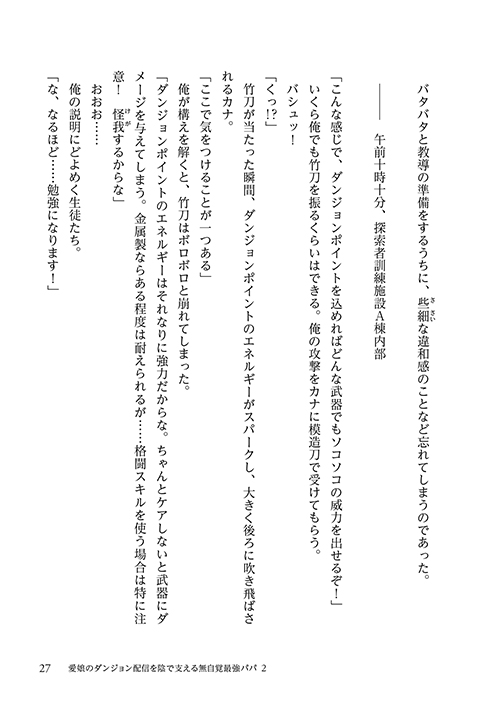 バタバタと教導の準備をするうちに、些細な違和感のことなど忘れてしまうのであった。
――― 午前十時十分、探索者訓練施設A棟内部
「こんな感じで、ダンジョンポイントを込めればどんな武器でもソコソコの威力を出せるぞ！」
いくら俺でも竹刀を振るくらいはできる。俺の攻撃をカナに模造刀で受けてもらう。
バシュッ！
「くっ!?」
竹刀が当たった瞬間、ダンジョンポイントのエネルギーがスパークし、大きく後ろに吹き飛ばさ
れるカナ。
「ここで気をつけることが一つある」
俺が構えを解くと、竹刀はボロボロと崩れてしまった。
「ダンジョンポイントのエネルギーはそれなりに強力だからな。ちゃんとケアしないと武器にダ
メージを与えてしまう。金属製ならある程度は耐えられるが……格闘スキルを使う場合は特に注
意！　怪我するからな」
おおお……
俺の説明にどよめく生徒たち。
「な、なるほど……勉強になります！」
27 愛娘のダンジョン配信を陰で支える無自覚最強パパ 2